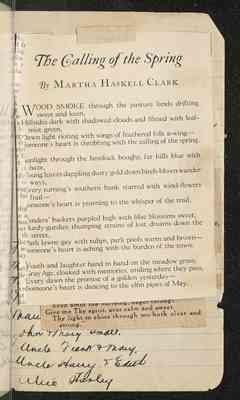 The Calling of the Spring
By MARTHA HASKELL CLARK
WOOD SMOKE through the pasture lands drifting
sweet and keen,
Hillsides dark with shadowed clouds and filmed with leaf-
mist green,
Dawn light rioting with songs of feathered folk a-wing—
Someone's heart is throbbing with the calling of the spring.
Sunlight through the hemlock boughs, far hills blue with
haze,
Young leaves dappling dusty gold down birch-blown wander
ways,
Every turning's southern bank starred with wind-flowers
frail—
Someone's heart is yearning to the whisper of the trail.
Vendors' baskets purpled high with lilac blossoms sweet,
hurdy-gurdies thumping strains of lost dreams down the
street,
Path lawns gay with tulips, park pools warm and brown—
Someone's heart is aching with the burden of the town.
Youth and laughter hand in hand on the meadow grass,
Gray Age, cloaked with memories, smiling where they pass,
Every dawn the promise of a golden yesterday—
Someone's heart is dancing to the elfin pipes of May.
Give me Thy spirit, ever calm and sweet
The light to shine through me both clear and
strong.
John & Mary
Uncle Frank & Mary,
Uncle Harry & Edith
Alice